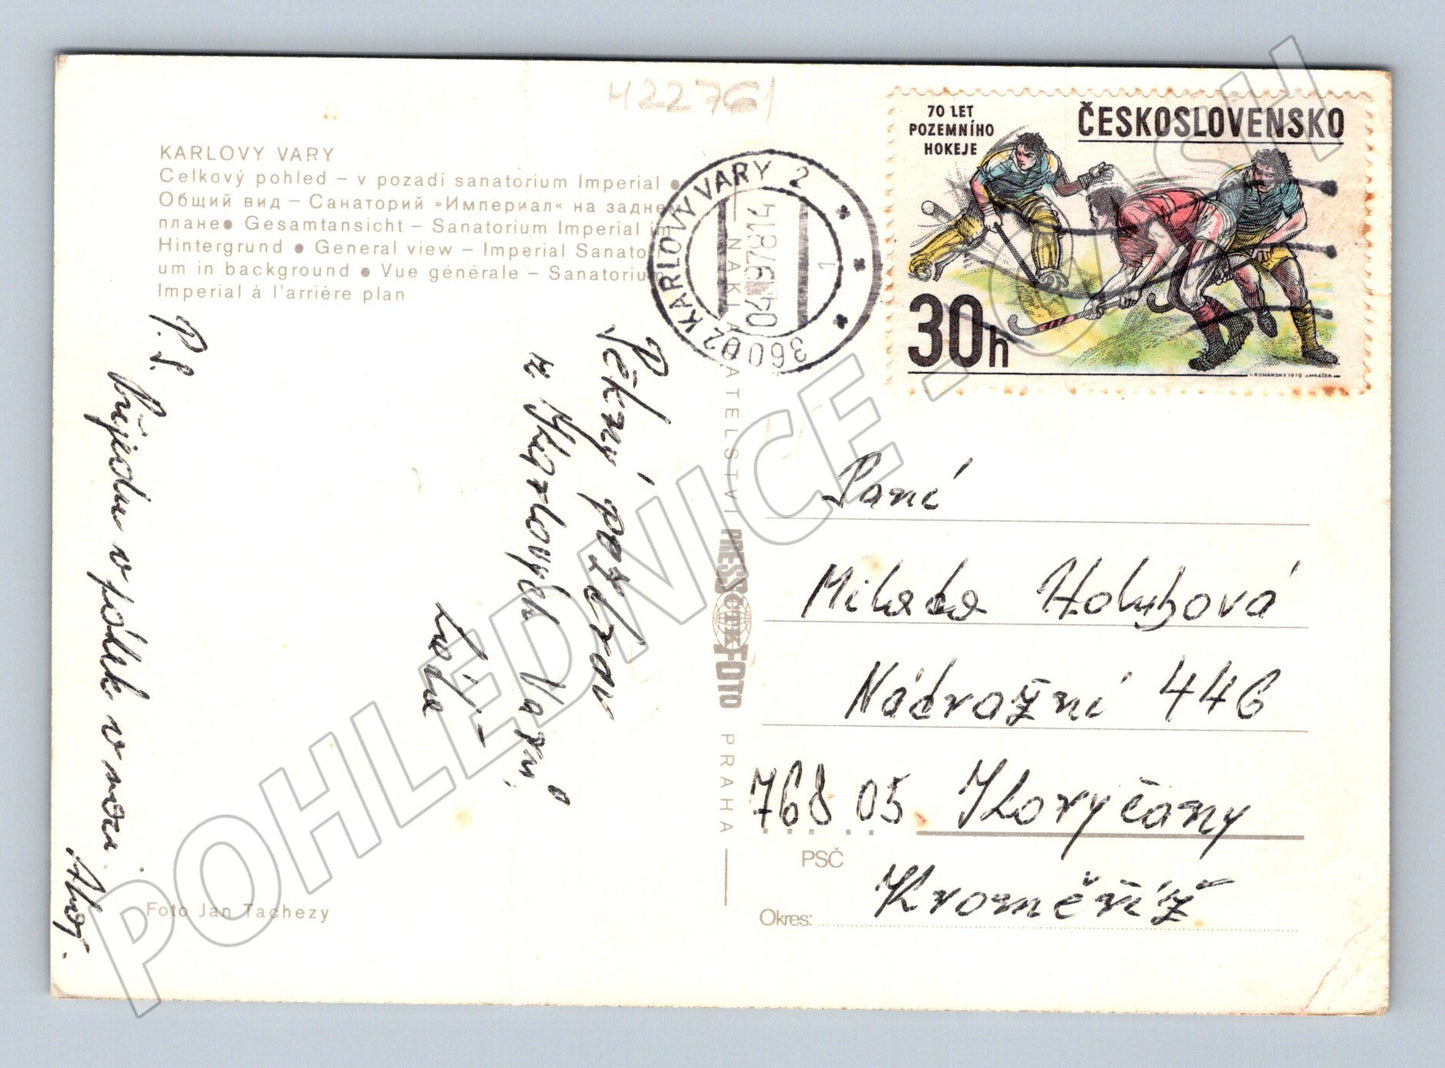 H22761
KARLOVY VARY
Celkový pohled – v pozadí sanatorium Imperial ●
Общий вид – Санаторий »Империал« на задне
плане● Gesamtansicht – Sanatorium Imperial i
Hintergrund ● General view – Imperial Sanato
um in background ● Vue générale – Sanatoriu
Imperial à l'arrière plan
P.S.
Přijedu v pátek v noci.
Ahoj.
Pěkný pozdrav
z Karlových Varů
Foto Jan Tachezy
360 02 KARLOVY VARY 2
1
NAKLADATELSTVÍ PRESSFOTO PRAHA
ČTK
70 LET
POZEMNÍHO
HOKEJE
ČESKOSLOVENSKO
30h
Paní
Milada Holubová
Nádražní 446
768 05 Koryčany
PSČ
Kroměříž
Okres:
POHLEDNICE - CASH